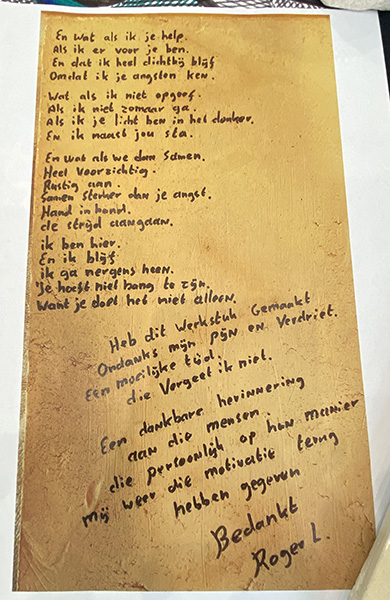 En wat als ik je help.
Als ik er voor je ben.
En dat ik heel dichtbij blijf
Omdat ik je angsten ken.
Wat als ik niet opgeef.
Als ik niet zomaar ga.
Als ik je licht ben in het donker.
En ik naast jou sta.
En wat als we dan samen.
Heel voorzichtig.
Rustig aan.
Samen sterker dan je angst.
Hand in hand.
de strijd aangaan.
ik ben hier.
En ik blijf
ik ga nergens heen.
Je hoeft niet bang te zijn.
Want je doet het niet alleen.
Heb dit werkstuk Gemaakt
Ondanks mijn pijn en Verdriet.
Een moeilijke tijd.
die Vergeet ik niet.
Een dankbare herinnering
aan die mensen.
die persoonlijk op hun manier
Mij weer die motivatie terug
hebben gegeven
Bedankt
Roger L.